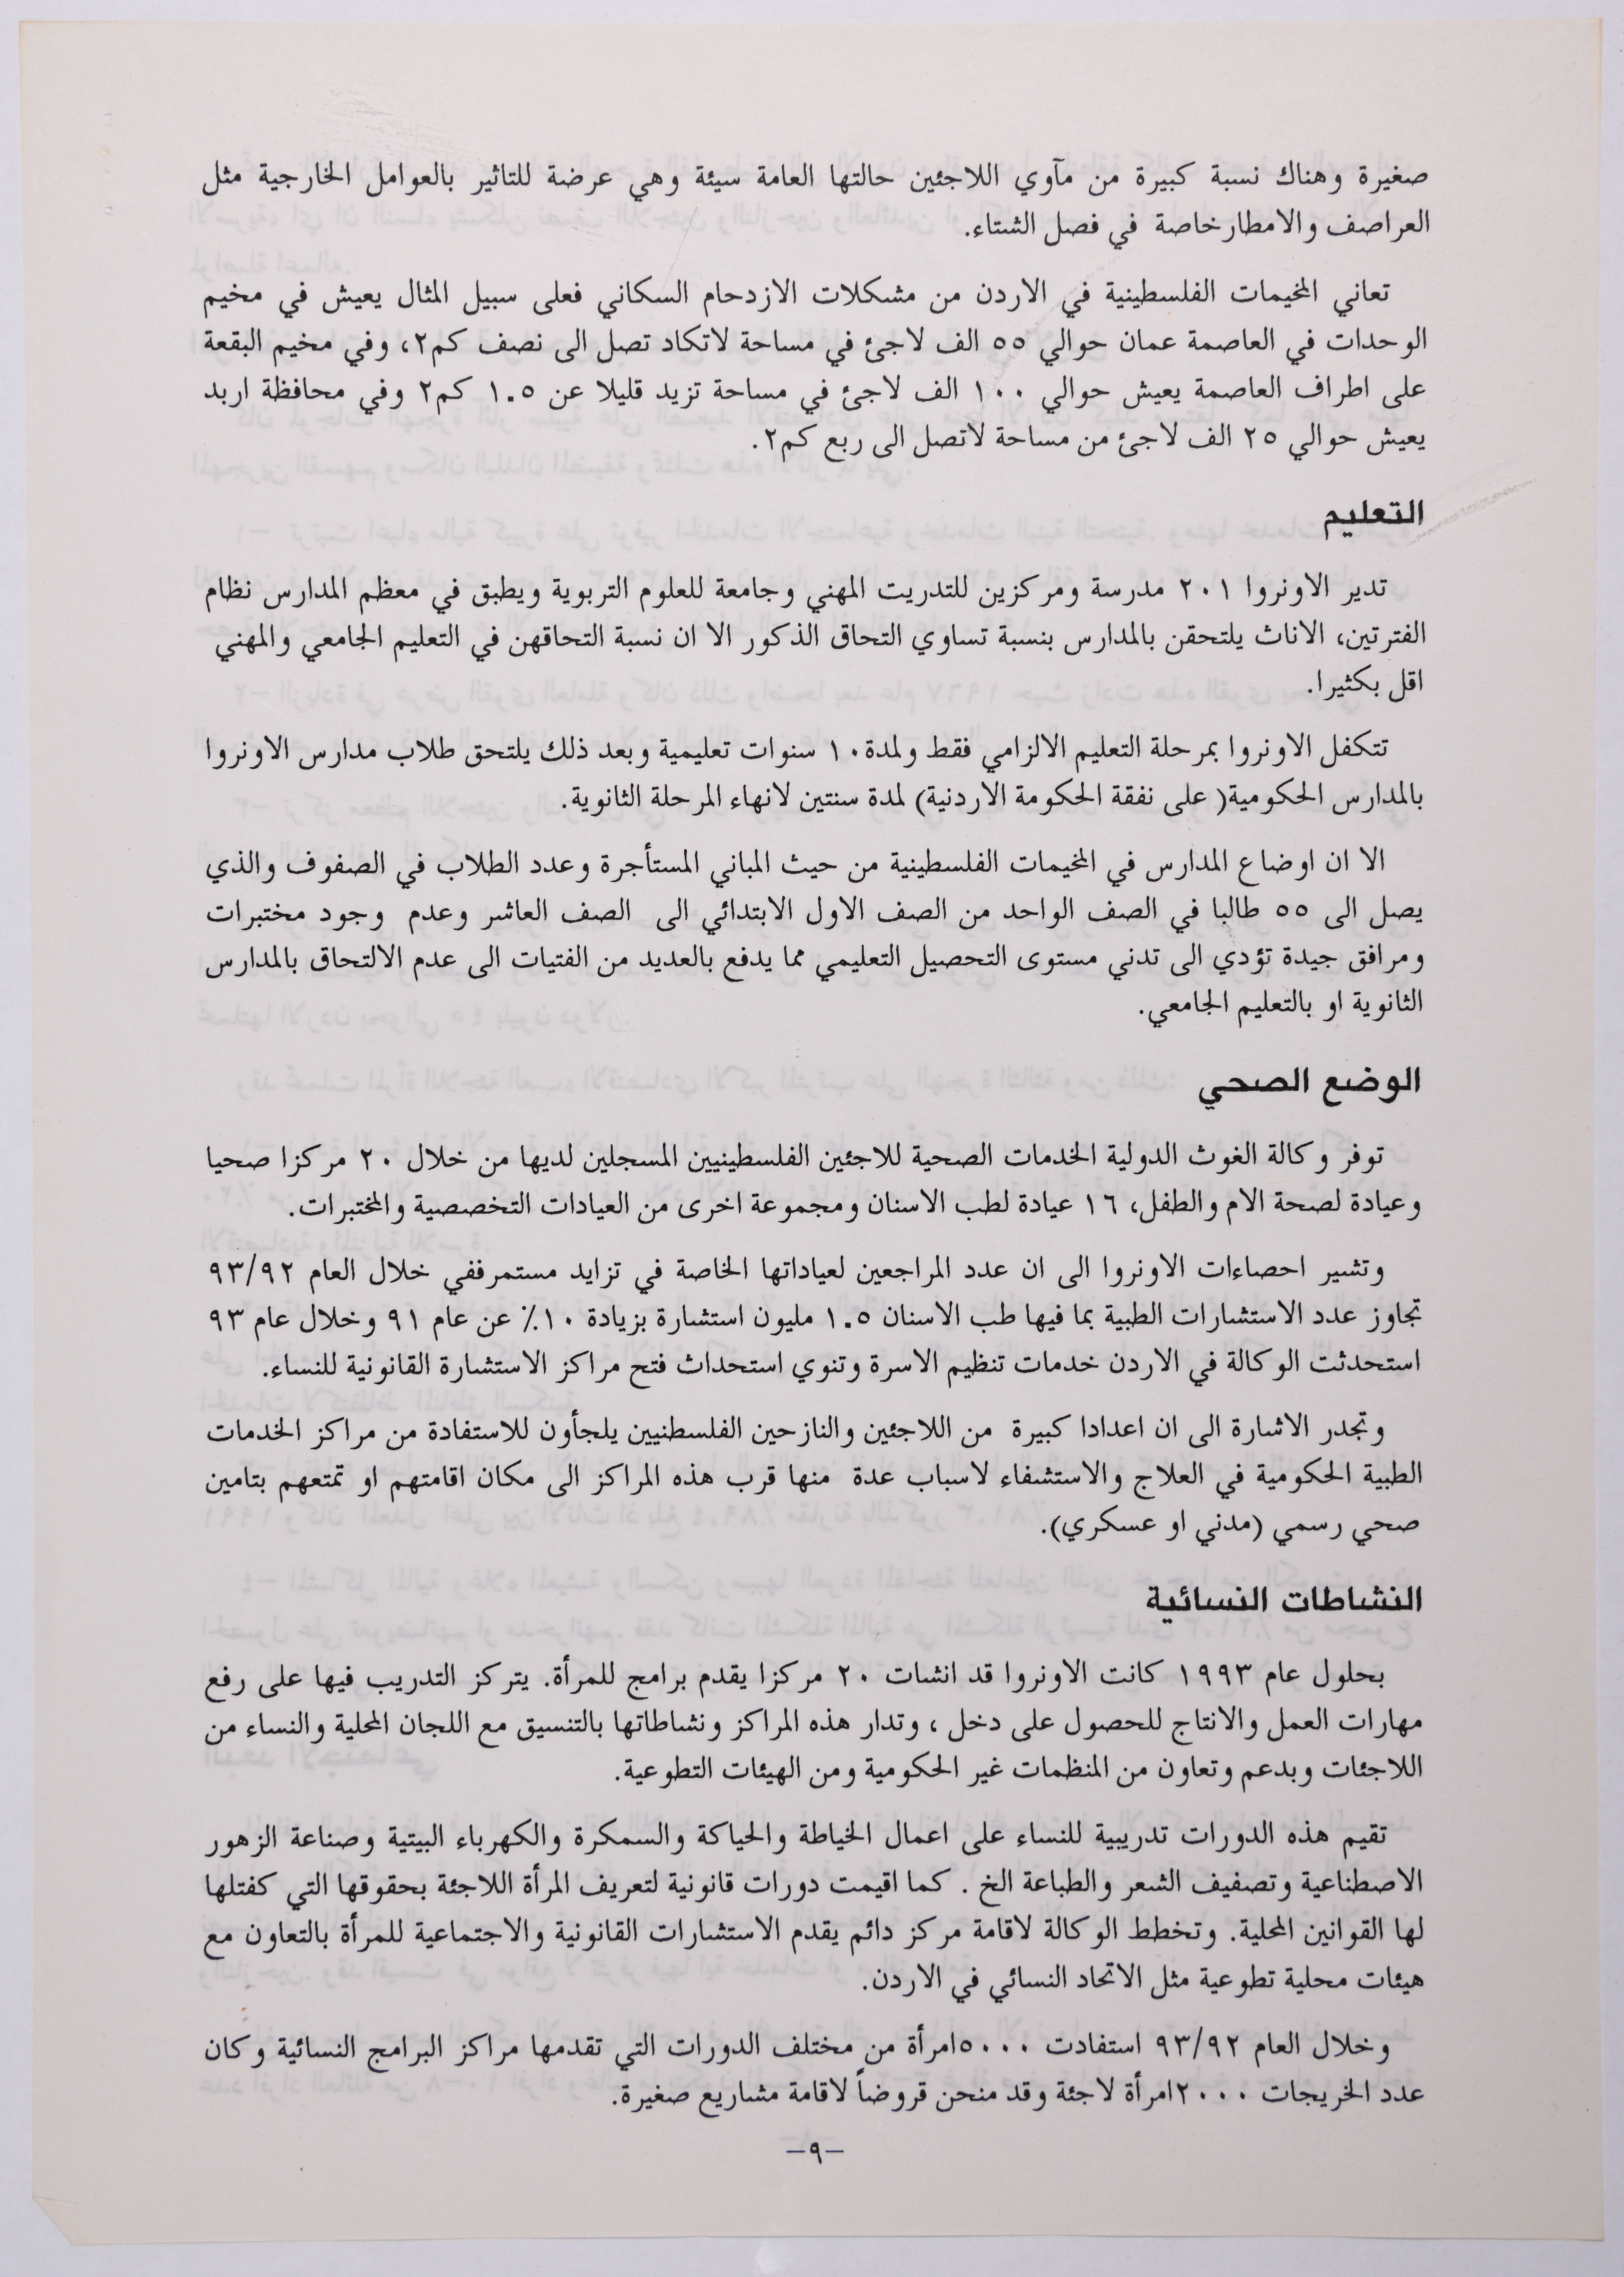 صغيرة وهناك نسبة كبيرة من مآوي اللاجئين حالتها العامة سيئة وهي عرضة للتاثير بالعوامل الخارجية مثل
العراصف والامطارخاصة في فصل الشتاء.
تعاني المخيمات الفلسطينية في الاردن من مشكلات الازدحام السكاني فعلى سبيل المثال يعيش في مخيم
الوحدات في العاصمة عمان حوالي ٥٥ الف لاجئ في مساحة لاتكاد تصل الى نصف كم٢، وفي مخيم البقعة
على اطراف العاصمة يعيش حوالي ١٠٠ الف لاجئ في مساحة تزيد قليلا عن ١.٥ كم٢ وفي محافظة اربد
يعيش حوالي ٢٥ الف لاجئ من مساحة لاتصل الى ربع كم٢.
التعليم
تدير الاونروا ٢٠١ مدرسة ومركزين للتدريت المهني وجامعة للعلوم التربوية ويطبق في معظم المدارس نظام
الفترتين، الاناث يلتحقن بالمدارس بنسبة تساوي التحاق الذكور الا ان نسبة التحاقهن في التعليم الجامعي والمهني
اقل بكثيرا.
تتكفل الاونروا بمرحلة التعليم الالزامي فقط ولمدة١٠ سنوات تعليمية وبعد ذلك يلتحق طلاب مدارس الاونروا
بالمدارس الحكومية( على نفقة الحكومة الاردنية) لمدة سنتين لانهاء المرحلة الثانوية.
الا ان اوضاع المدارس في المخيمات الفلسطينية من حيث المباني المستأجرة وعدد الطلاب في الصفوف والذي
يصل الى ٥٥ طالبا في الصف الواحد من الصف الاول الابتدائي الى الصف العاشر وعدم وجود مختبرات
ومرافق جيدة تؤدي الى تدني مستوى التحصيل التعليمي مما يدفع بالعديد من الفتيات الى عدم الالتحاق بالمدارس
الثانوية او بالتعليم الجامعي.
الوضع الصحي
توفر وكالة الغوث الدولية الخدمات الصحية للاجئين الفلسطينيين المسجلين لديها من خلال ٢٠ مركزا صحيا
وعيادة لصحة الام والطفل، ١٦ عيادة لطب الاسنان ومجموعة اخرى من العيادات التخصصية والمختبرات.
وتشير احصاءات الاونروا الى ان عدد المراجعين لعياداتها الخاصة في تزايد مستمرففي خلال العام ٩٣/٩٢
تجاوز عدد الاستشارات الطبية بما فيها طب الاسنان ١.٥ مليون استشارة بزيادة ١٠٪ عن عام ٩١ وخلال عام ٩٣
استحدثت الوكالة في الاردن خدمات تنظيم الاسرة وتنوي استحداث فتح مراكز الاستشارة القانونية للنساء.
وتجدر الاشارة الى ان اعدادا كبيرة من اللاجئين والنازحين الفلسطنيين يلجأون للاستفادة من مراكز الخدمات
الطبية الحكومية في العلاج والاستشفاء لاسباب عدة منها قرب هذه المراكز الى مكان اقامتهم او تمتعهم بتامين
صحي رسمي (مدني او عسكري).
النشاطات النسائية
بحلول عام ١٩٩٣ كانت الاونروا قد انشات ٢٠ مركزا يقدم برامج للمرأة. يتركز التدريب فيها على رفع
مهارات العمل والانتاج للحصول على دخل ، وتدار هذه المراكز ونشاطاتها بالتنسيق مع اللجان المحلية والنساء من
اللاجئات وبدعم وتعاون من المنظمات غير الحكومية ومن الهيئات التطوعية.
تقيم هذه الدورات تدريبية للنساء على اعمال الخياطة والحياكة والسمكرة والكهرباء البيتية وصناعة الزهور
الاصطناعية وتصفيف الشعر والطباعة الخ . كما اقيمت دورات قانونية لتعريف المرأة اللاجئة بحقوقها التي كفتلها
لها القوانين المحلية. وتخطط الوكالة لاقامة مركز دائم يقدم الاستشارات القانونية والاجتماعية للمرأة بالتعاون مع
هيئات محلية تطوعية مثل الاتحاد النسائي في الاردن.
وخلال العام ٩٣/٩٢ استفادت ٥٠٠٠امرأة من مختلف الدورات التي تقدمها مراكز البرامج النسائية وكان
عدد الخريجات ٢٠٠٠امرأة لاجئة وقد منحن قروضاً لاقامة مشاريع صغيرة.
–٩–